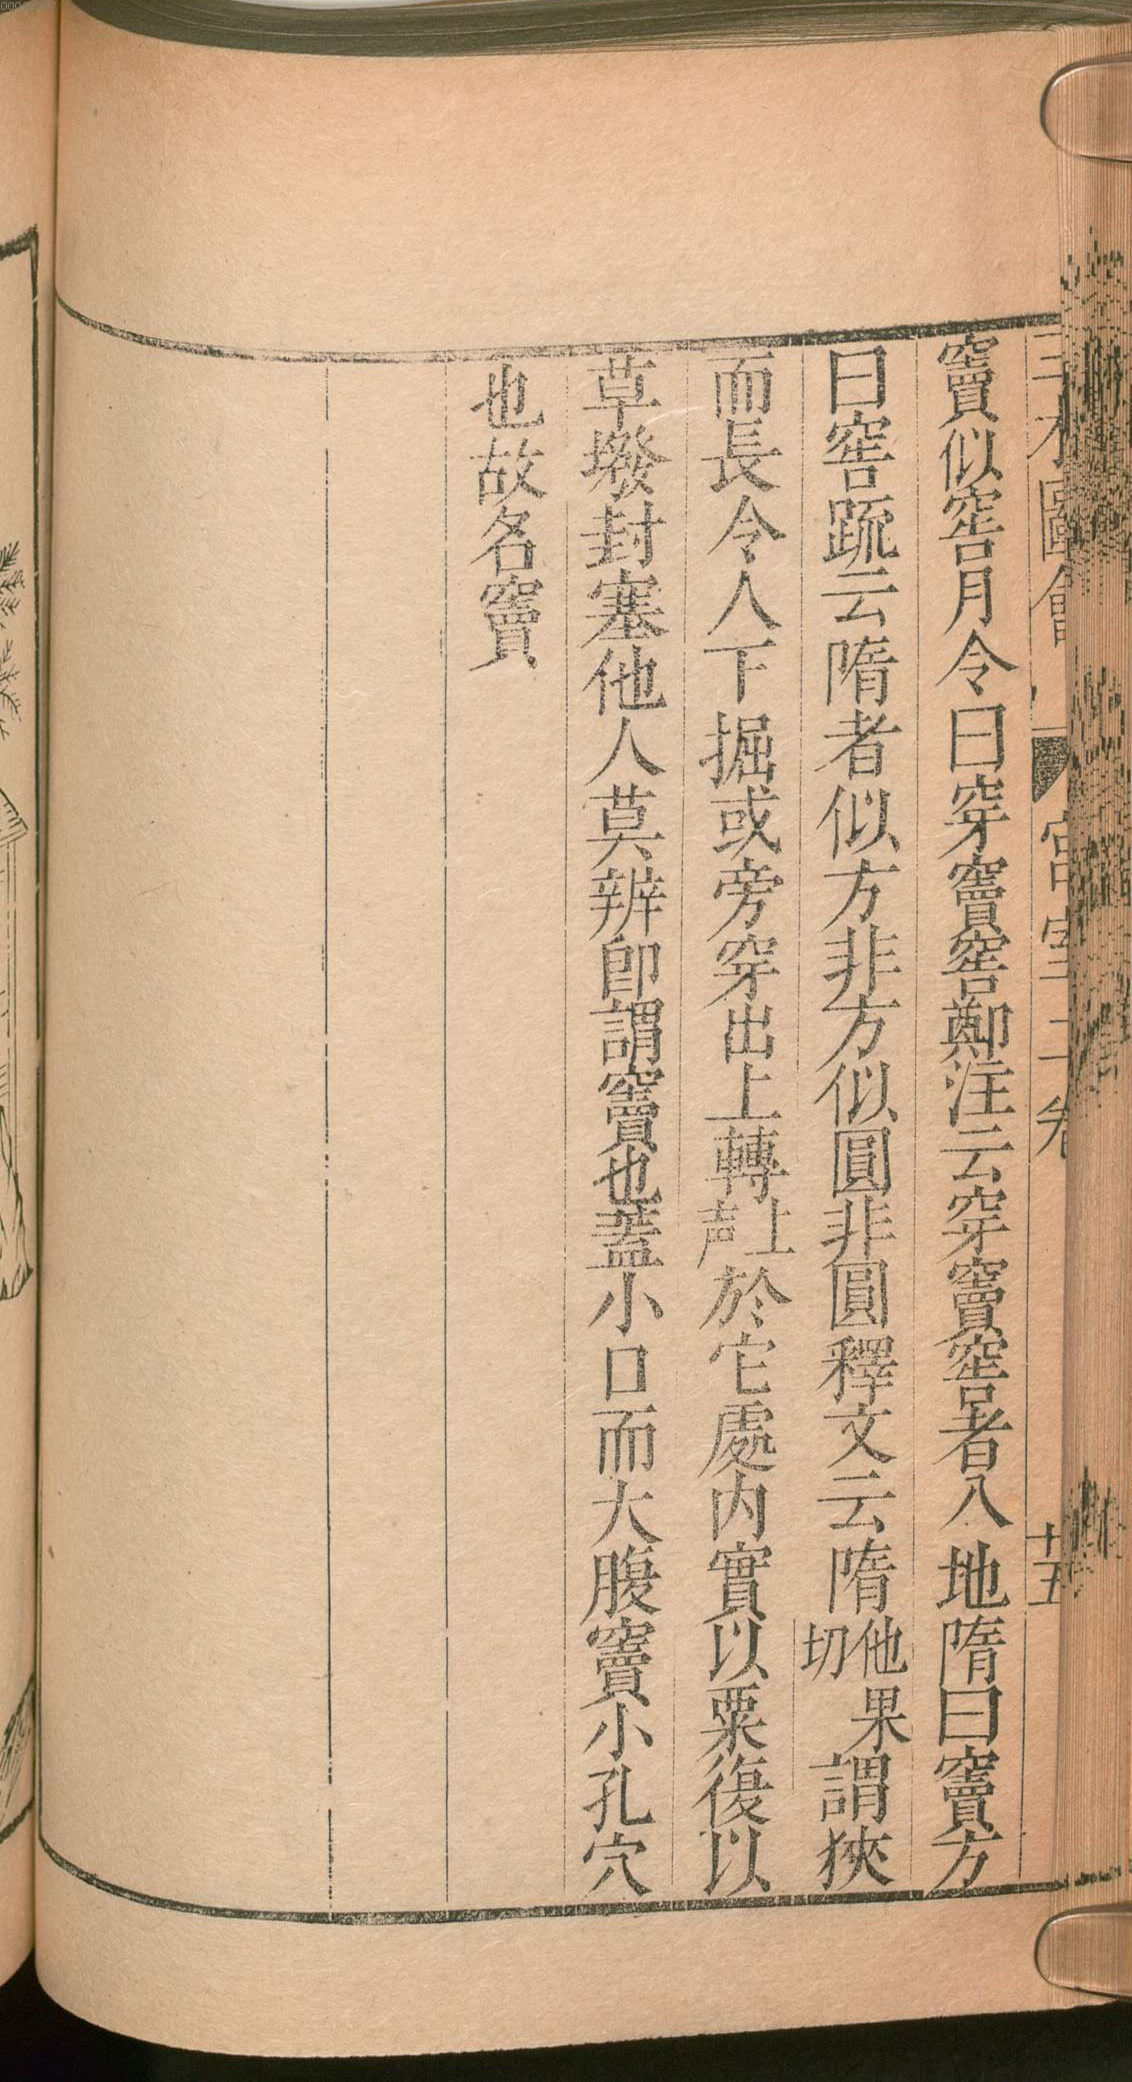 三才圖會 宮室二卷 十五
竇似窖月令曰穿竇窖鄭注云穿竇窖者入地隋曰竇方
曰窖䟽云隋者似方非方似圓非圓釋文云隋他果切謂狹
而長令人下掘或旁穿出上轉上声於它處内實以粟復以
草墢封塞他人莫辨卽謂竇也蓋小口而大腹竇小孔穴
也故名竇